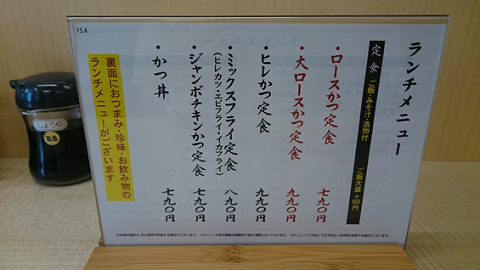 ランチメニュー
定食 ご飯・みそ汁・漬物付 ご飯大盛+60円
・ロースかつ定食 七九〇円
・大ロースかつ定食 九九〇円
・ヒレかつ定食 九九〇円
・ミックスフライ定食 八九〇円
(ヒレカツ・エビフライ・イカフライ)
・ジャンボチキンかつ定食 七九〇円
・かつ丼 七九〇円
裏面におつまみ・珍味・お飲み物の
ランチメニューがございます
15.4
しょうゆ